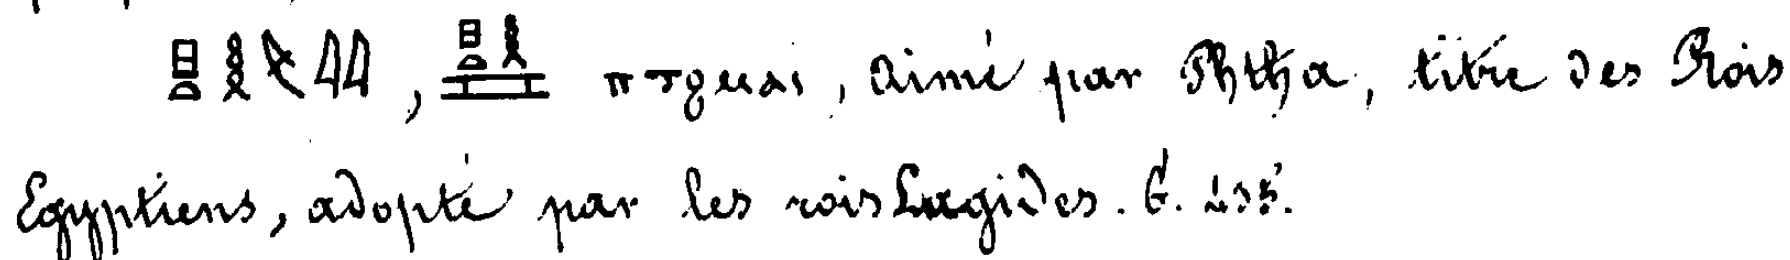 𓊪𓏏𓎛𓌸𓇋𓇋, 𓊪𓏏𓎛𓈅 ⲡⲧϩⲙⲁⲓ, aimé par Phtha, titre des Rois
Egyptiens, adopté par les rois Lagides. G.